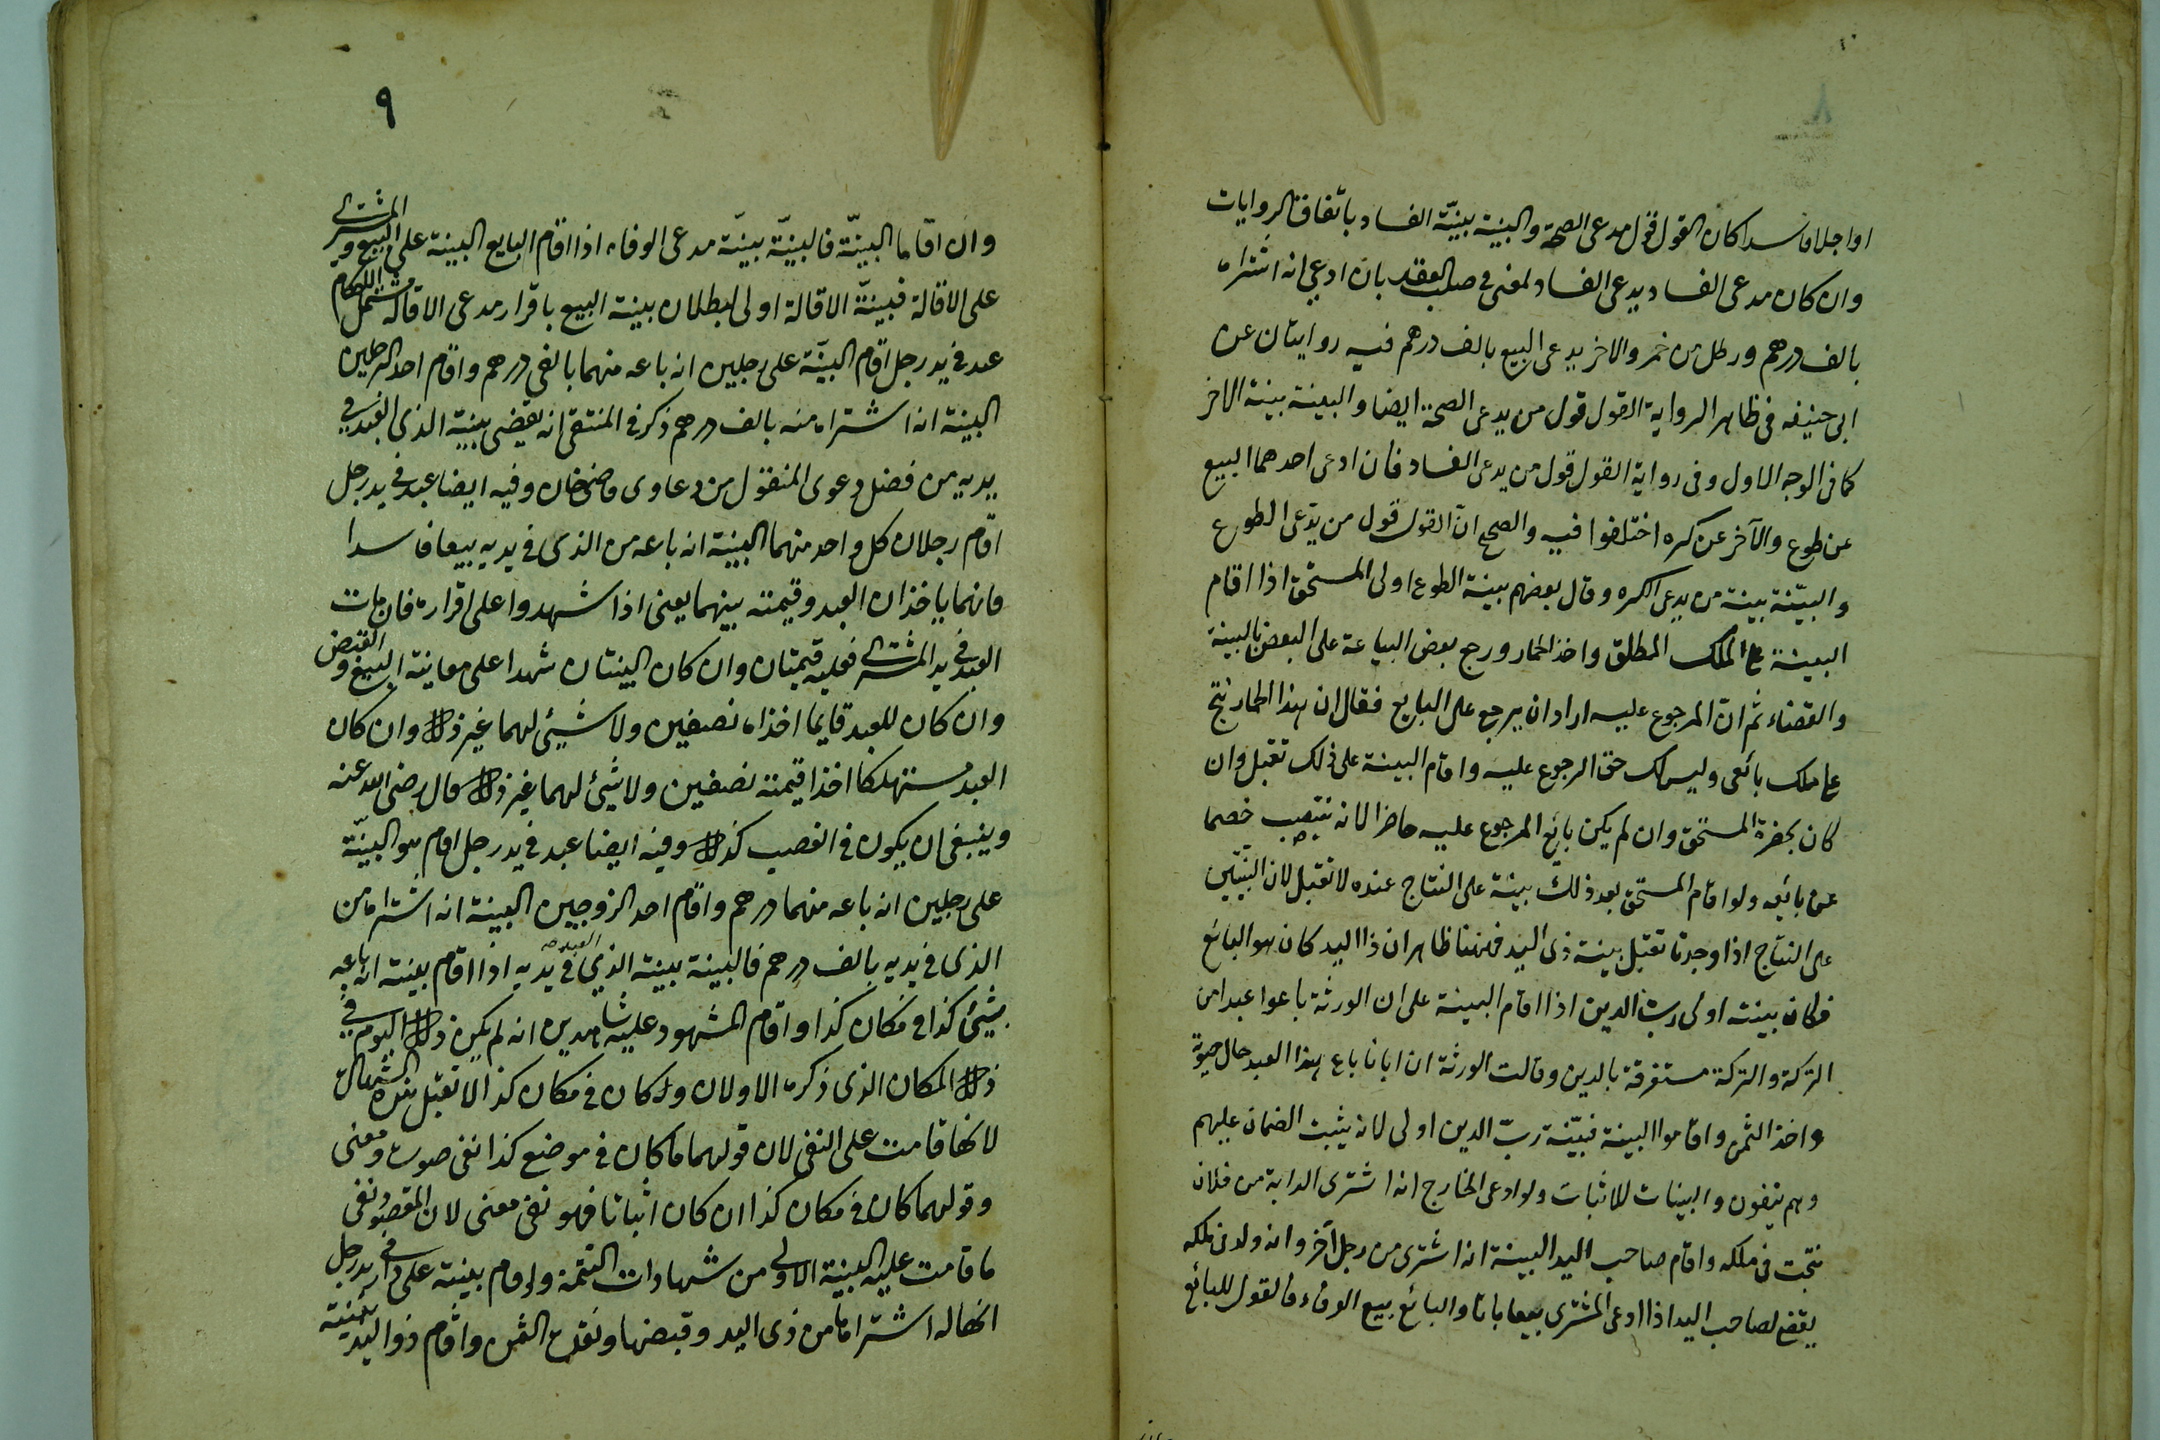 او اجلا فاسدا كان القول قول مدعى الصحة والبينة بينة الفساد باتفاق الروايات
وان كان مدعى الفساد يدعى الفساد لمعنى في صلب العقد بان ادعى انه اشتراه
بالف درهم ورطل من خمر والاخر يدعى البيع بالف درهم فيه روايتان عن
ابى حنيفه فى ظاهر الرواية القول قول من يدعى الصحة ايضا والبينة بينة الاخر
كما فى الوجه الاول وفى رواية القول قول من يدعى الفساد فان ادعى احدهما البيع
عن طوع والآخر عن كره اختلفوا فيه والصحيح انّ القول قول من يدّعى الطوع
والبيّنة بينة من يدعى الكره وقال بعضهم بينة الطوع اولى المستحق اذا اقام
البينة على الملك المطلق واخذ الحمار ورجع بعض الباعة على البعض بالبينة
والقضاء ثم انّ المرجوع عليه اراد ان يرجع على البايع فقال ان هذا الحمار نتج
على ملك بائعى وليس لك حق الرجوع عليه واقام البينة على ذلك تقبل وان
كان بحضرة المستحق وان لم يكن بايع المرجوع عليه حاضرا لانه ينتصب خصما
عن بائعه ولو اقام المستحق بعد ذلك بينة على النتاج عنده لا تقبل لان البينتين
على النتاج اذا وجدتا تقبل بينة ذى اليد فههنا ظاهر ان ذا اليد كان هو البائع
فكان بينته اولى رب الدين اذا اقام البينة على ان الورثة باعوا عبدا من
التركة والتركة مستغرقة بالدين وقالت الورثة ان ابانا باع هذا العبد حال حيوته
واخذ الثمن واقاموا البينة فبيّنة ربّ الدين اولى لانه يثبت الضمان عليهم
وهم ينفون والبينات للاثبات ولو ادعى الخارج انه اشترى الدابة من فلان
نتجت فى ملكه واقام صاحب اليد البينة انه اشترى من رجل آخر وانه ولد فى ملكه
يقضى لصاحب اليد اذا ادعى المشترى بيعا باتا والبائع بيع الوفاء فالقول للبائع
٩
وان اقاما البينّة فالبينّة بينّة مدعى الوفاء اذا اقام البايع البينة على البيع والمشترى
على الاقالة فبينّة الاقالة اولى لبطلان بينة البيع باقرار مدعى الاقالة مشتمل الاحكام
عبد فى يد رجل اقام البيّنة على رجلين انه باعه منهما بالفى درهم واقام احد الرجلين
البينة انه اشتراه منه بالف درهم ذكر فى المنتقى انه يقضى ببينة الذى العبد فى
يديه من فصل دعوى المنقول من دعاوى قاضى خان وفيه ايضا عبد فى يد رجل
اقام رجلان كل واحد منهما البينة انه باعه من الذى فى يديه بيعا فاسدا
فانهما ياخذان العبد وقيمته بينهما يعنى اذا شهدوا على اقراره فان مات
العبد فى يد المشترى فعليه قيمتان وان كان البينتان شهدا على معاينة البيع والقبض
وان كان للعبد قايما اخذاه نصفين ولا شيئ لهما غير ذلك وان كان
العبد مستهلكا اخذا قيمته نصفين ولا شيئ لهما غير ذلك قال رضى الله عنه
وينبغى ان يكون فى الغصب كذلك وفيه ايضا عبد فى يد رجل اقام هو البيّنة
على رجلين انه باعه منهما درهم واقام احد الزوجين البينة انه اشتراه من
الذى فى يديه بالف درهم فالبينة بينة الذى العبد فى يديه اذا اقام بينة انه باعه
بشيئ كذا فى مكان كذا واقام المشهود عليه شاهدين انه لم يكن ذلك اليوم فى
ذلك المكان الذى ذكره الاولان ولكان فى مكان كذا لا تقبل هذه الشهادة
لانها قامت على النفى لان قولهما ما كان فى موضع كذا نفى صورة ومعنى
وقولهما كان فى مكان كذا ان كان اثباتا فهو نفى معنى لان المقصود نفى
ما قامت عليه البينة الاولى من شهادات التتمة ولو اقام بينة على دار فى يد رجل
انها له اشتراها من ذى اليد وقبضها ونقده الثمن واقام ذو اليد بينة